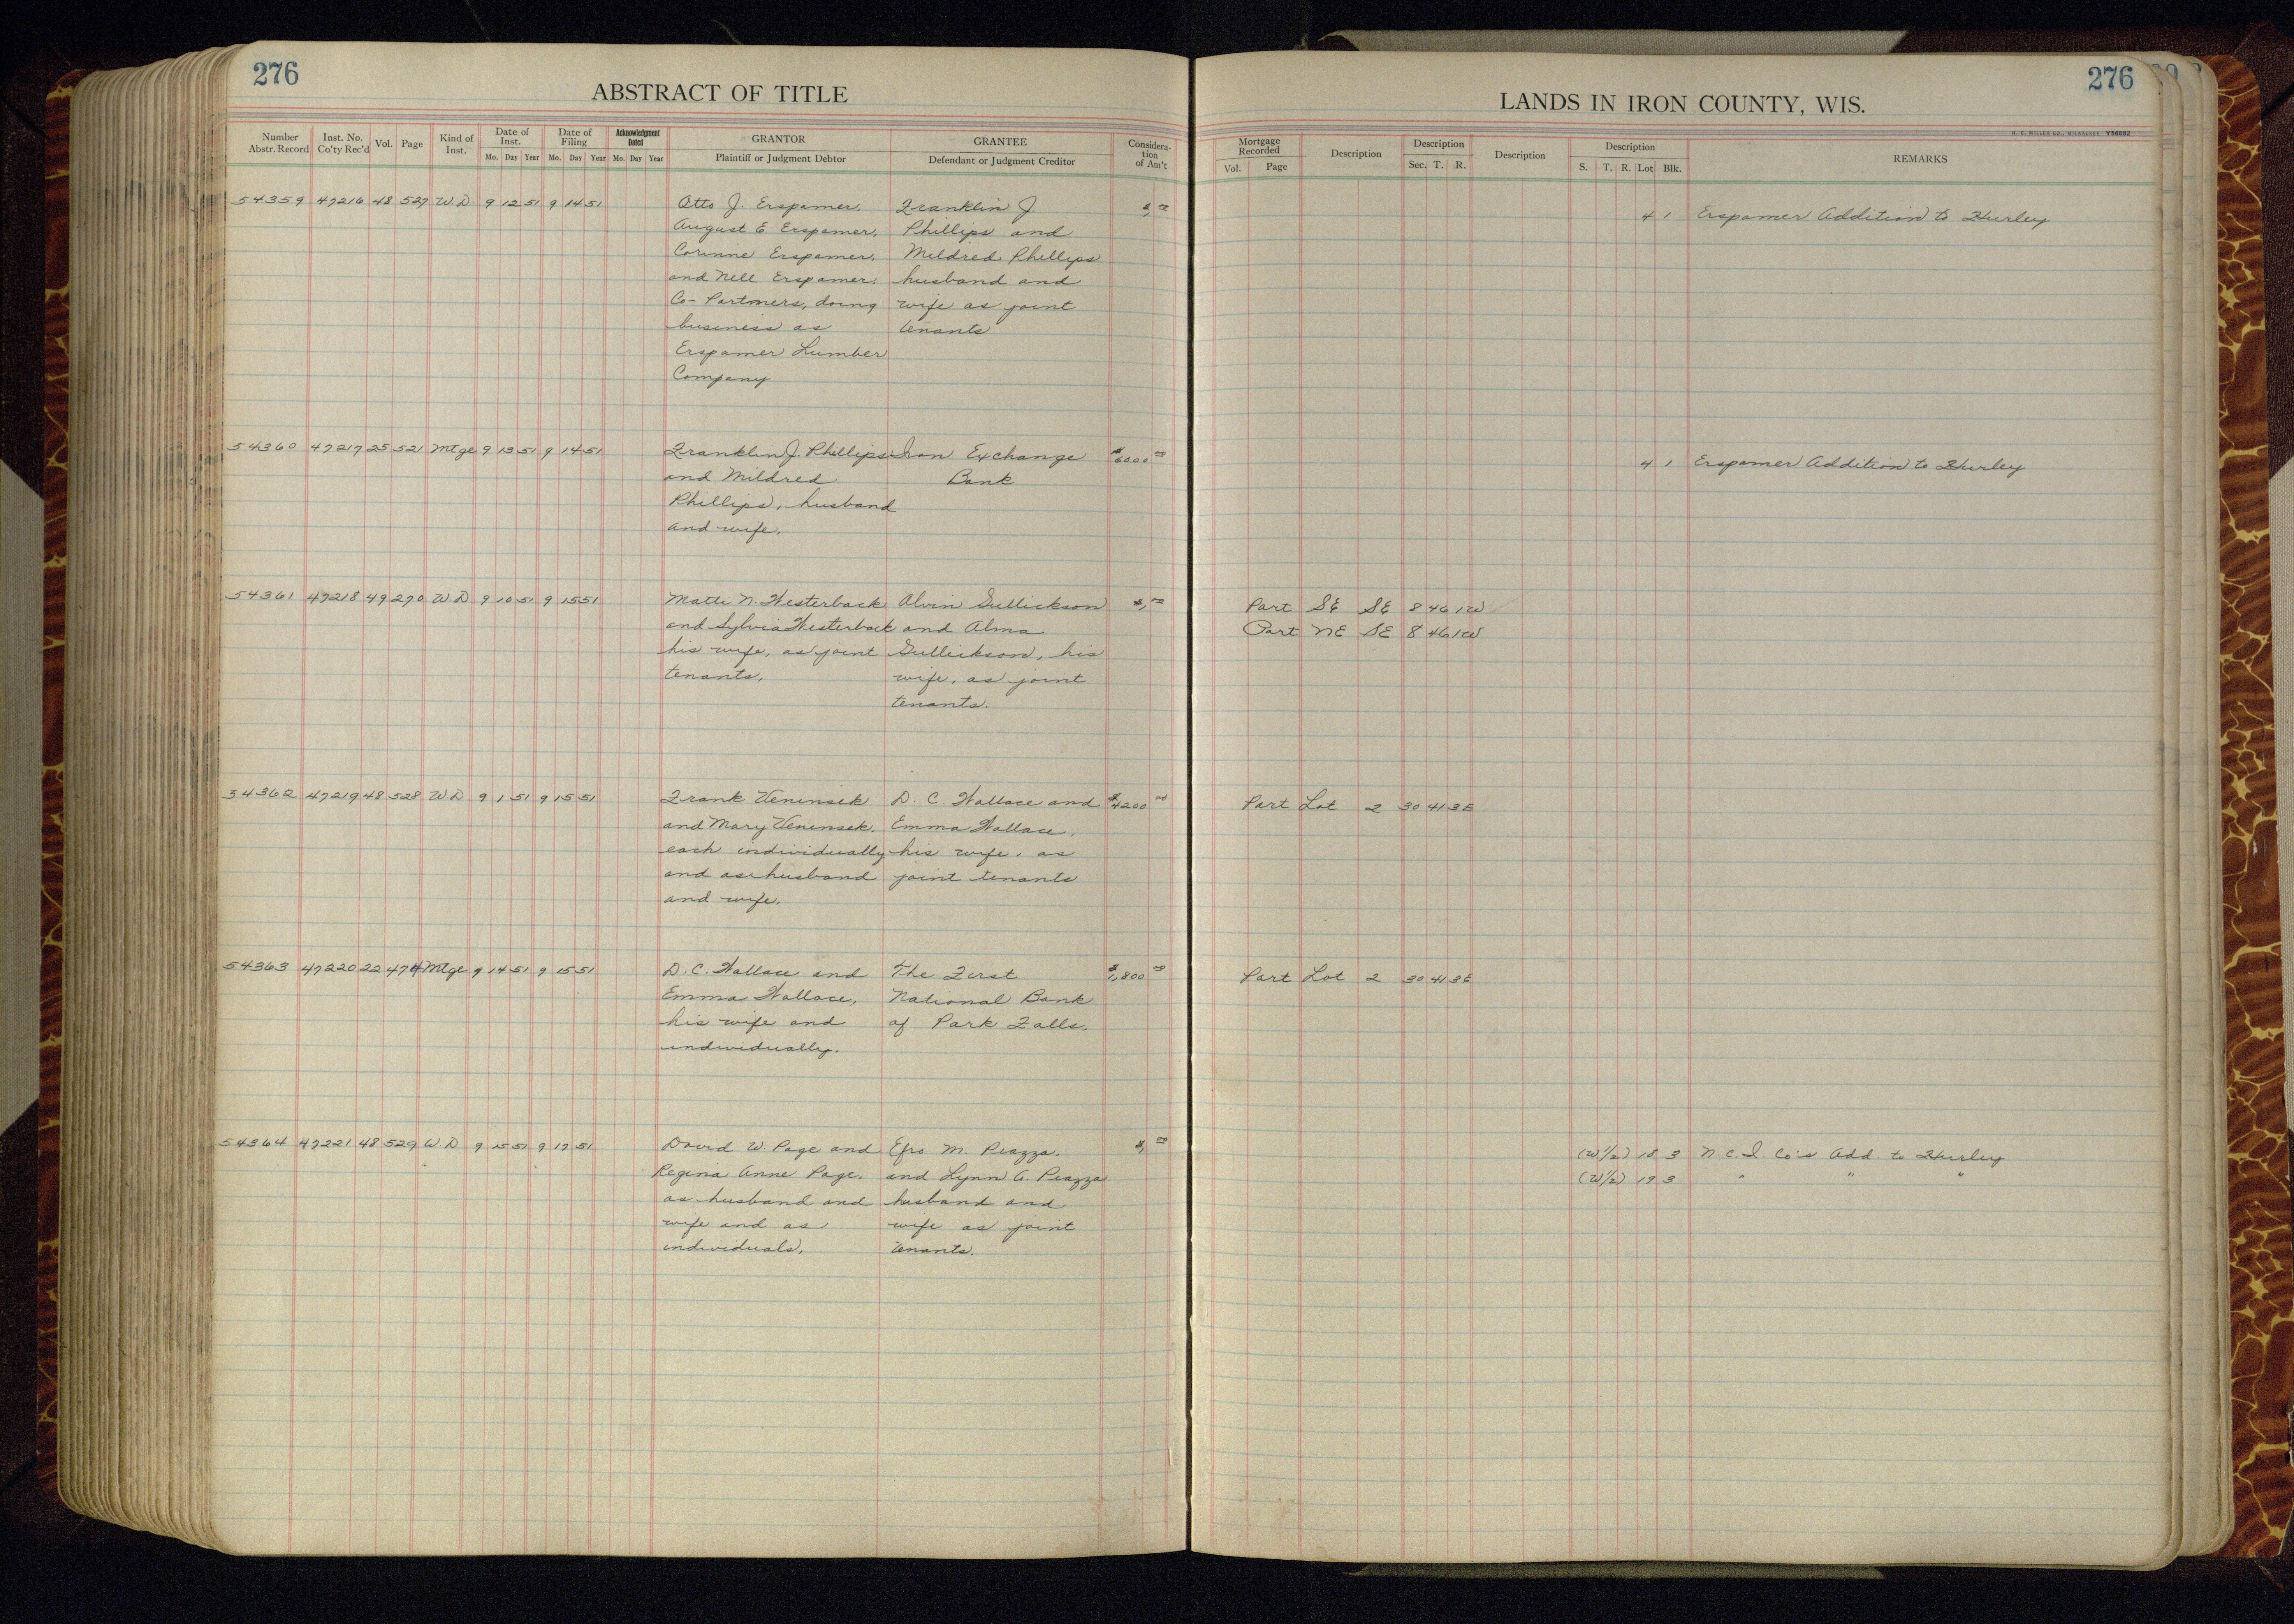 276
ABSTRACT OF TITLE
Number Abstr. Record
Inst. No. Co'ty Rec'd
Vol.
Page
Kind of Inst.
Date of Inst.
Mo. Day Year
Date of Filing
Mo. Day Year
Acknowledgment Dated
Mo. Day Year
GRANTOR
Plaintiff or Judgment Debtor
GRANTEE
Defendant or Judgment Creditor
Considera-tion of Am't
54359 47216 48 527 W.D. 9 12 51 9 14 51 Otto J. Erspamer, Franklin J. $1,00
August E. Erspamer, Phillips and
Corinne Erspamer, Mildred Phillips
and Nell Erspamer, husband and
Co-Partners, doing wife as joint
business as tenants
Erspamer Lumber
Company
54360 47217 25 521 Mtge 9 13 51 9 14 51 Franklin J. Phillips Iron Exchange $6000 00
and Mildred Bank
Phillips, husband
and wife.
54361 47218 49 270 W.D 9 10 51 9 15 51 Matti N. Westerback Alvin Gullickson $1,00
and Sylvia Westerback and Alma
his wife, as joint Gullickson, his
tenants. wife, as joint
tenants.
54362 47219 48 528 W.D 9 1 51 9 15 51 Frank Veninsek D. C. Wallace and $4200 00
and Mary Veninsek, Emma Wallace,
each individually his wife, as
and as husband joint tenants
and wife.
54363 47220 22 474 Mtge 9 14 51 9 15 51 D. C. Wallace and The First $1,800 00
Emma Wallace, National Bank
his wife and of Park Falls.
individually.
54364 47221 48 529 W.D 9 15 51 9 17 51 David W. Page and Efro M. Piazza, $1,00
Regina Anne Page, and Lynn A. Piazza
as husband and husband and
wife and as wife as joint
individuals. tenants.
276
LANDS IN IRON COUNTY, WIS.
H. C. MILLER CO., MILWAUKEE
Mortgage Recorded
Vol. Page
Description
Description
Sec. T. R.
Description
Description
S. T. R. Lot Blk.
REMARKS
4 1 Erspamer Addition to Hurley
4 1 Erspamer Addition to Hurley
Part SE SE 8 46 1W
Part NE SE 8 46 1W
Part Lot 2 30 41 3E
Part Lot 2 30 41 3E
(W 1/2) 18 3 N. C. I. Co's Add. to Hurley
(W 1/2) 19 3 " " "